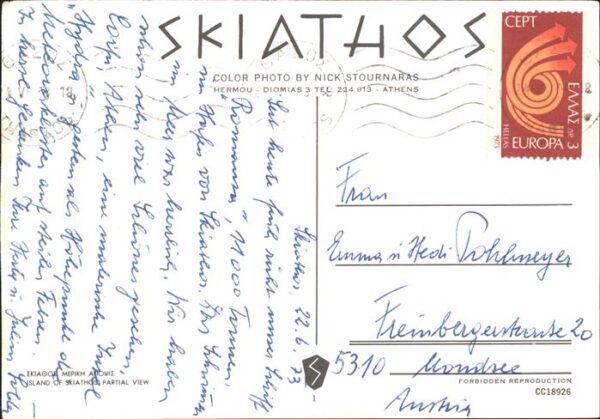 SKIATHOS
COLOR PHOTO BY NICK STOURNARAS
HERMOU - DIOMIAS 3 TEL. 224.613 - ATHENS
CEPT
ΕΛΛΑΣ ΔΡ 3
HELLAS
1973
EUROPA
Skiathos, 22.6.73
Seit heute früh steht unser Schiff
"Romanza", 11000 Tonnen,
im Hafen von Skiathos. Die
war herrlich, Wir haben
schon sehr viel Schönes gesehen
Korfu, Athen, eine malerische Insel
"Hydra",
Meteoraklöster auf steilen Felsen.
Frau
Emma u Hedi Pohlmeyer
Freinbergerstrasse 20
5310 Mondsee
Austria
ΣΚΙΑΘΟΣ ΜΕΡΙΚΗ ΑΠΟΨΙΣ
ISLAND OF SKIATHOS PARTIAL VIEW
1
FORBIDDEN REPRODUCTION
CC18926